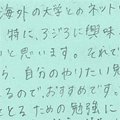 海外の大学とのネット
特に、3ジ3に興味
いと思います。それで
ら、自分のやりたい見
るのでおすすめです。
とるための勉強に